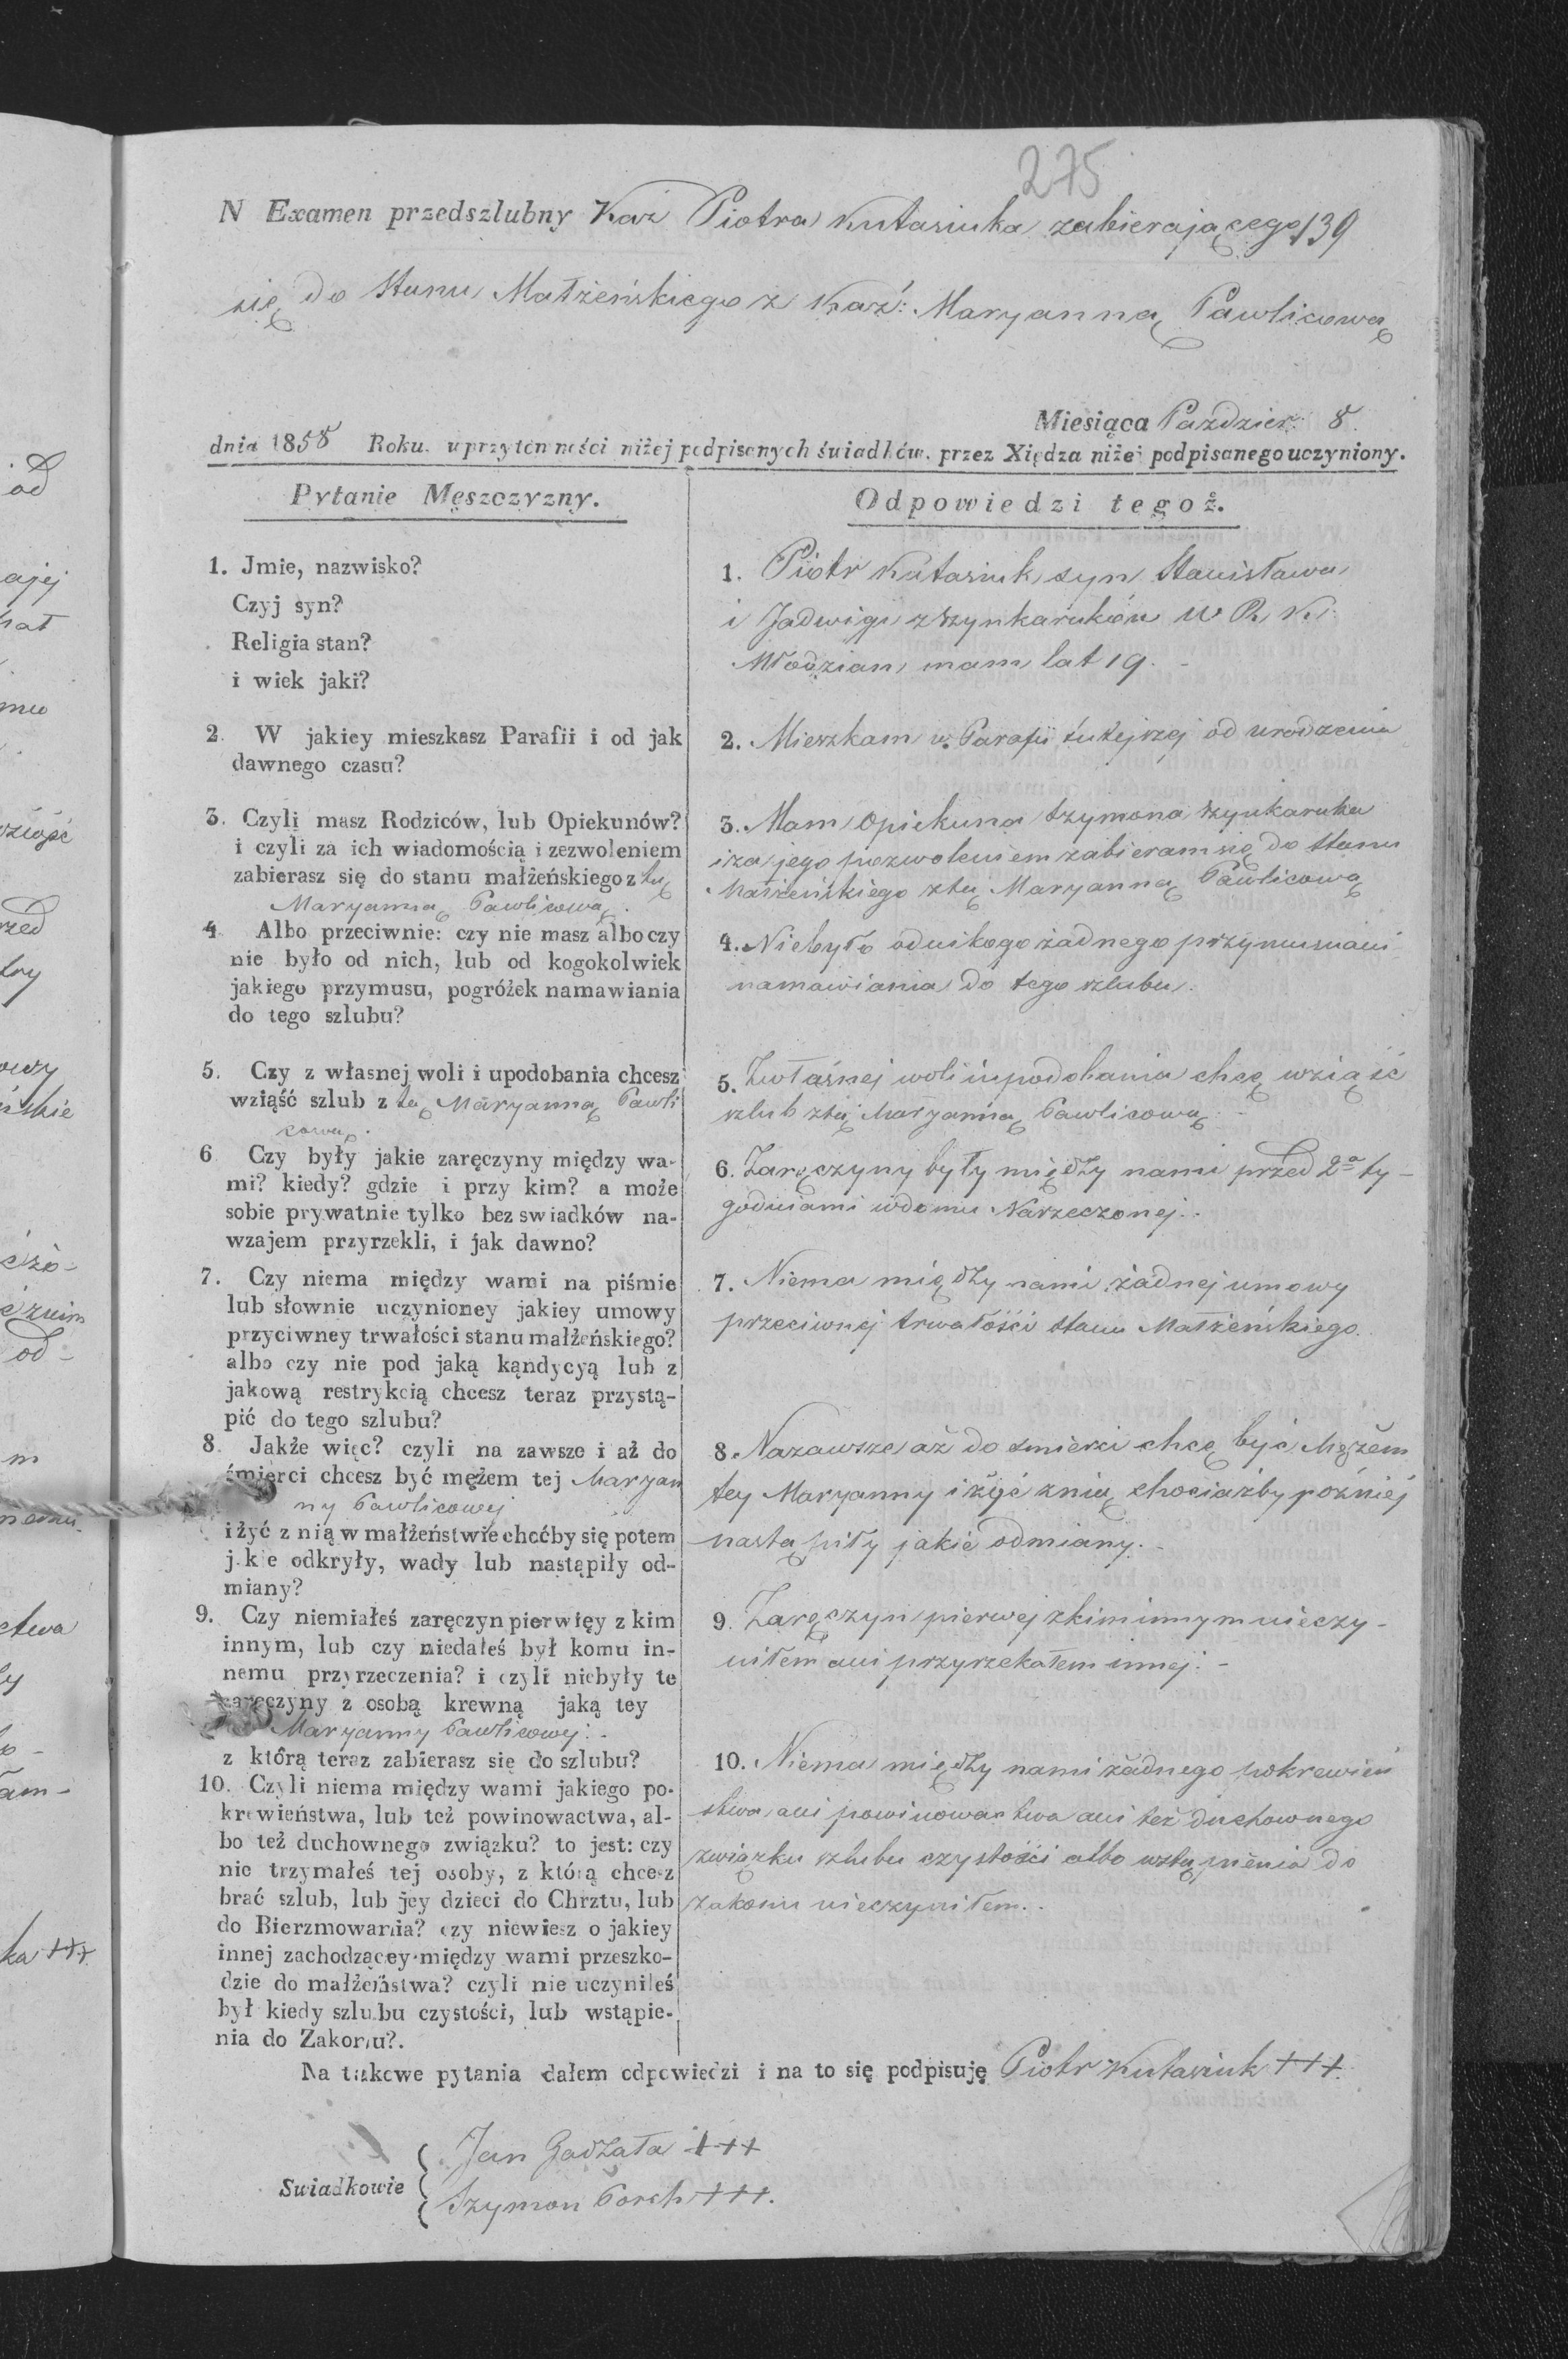 275
N Examen przedszlubny Kaź Piotra Kutasiuka zabierającego 139
się do Stanu Małżeńskiego z Kaź: Maryanną Pawlicową
Miesiąca Paździer: 8.
dnia 1858 Roku. w przytomności niżej podpisanych świadków. przez Xiędza niżej podpisanego uczyniony.
Pytanie Męszczyzny.
1. Jmie, nazwisko?
Czyj syn?
Religia stan?
i wiek jaki?
2. W jakiey mieszkasz Parafii i od jak
dawnego czasu?
3. Czyli masz Rodziców, lub Opiekunów?
i czyli za ich wiadomością i zezwoleniem
zabierasz się do stanu małżeńskiego z tą
Maryanną Pawlicową.
4 Albo przeciwnie: czy nie masz albo czy
nie było od nich, lub od kogokolwiek
jakiego przymusu, pogróżek namawiania
do tego szlubu?
5. Czy z własnej woli i upodobania chcesz
wziąść szlub z tą Maryanną Pawli
cową.
6 Czy były jakie zaręczyny między wa-
mi? kiedy? gdzie i przy kim? a może
sobie prywatnie tylko bez swiadków na-
wzajem przyrzekli, i jak dawno?
7. Czy niema między wami na piśmie
lub słownie uczynioney jakiey umowy
przyciwney trwałości stanu małżeńskiego?
albo czy nie pod jaką kąndycyą lub z
jakową restrykcią chcesz teraz przystą-
pić do tego szlubu?
8. Jakże więc? czyli na zawsze i aż do
śmierci chcesz być mężem tej Maryan
ny Pawlicowej
i żyć z nią w małżeństwie choćby się potem
j.kie odkryły, wady lub nastąpiły od-
miany?
9. Czy niemiałeś zaręczyn pierwięy z kim
innym, lub czy niedałeś był komu in-
nemu przyrzeczenia? i czyli niebyły te
zaręczyny z osobą krewną jaką tey
Maryanny Pawlicowej:
z którą teraz zabierasz się do szlubu?
10. Czyli niema między wami jakiego po-
krewieństwa, lub też powinowactwa, al-
bo też duchownego związku? to jest: czy
nie trzymałeś tej osoby, z którą chcesz
brać szlub, lub jey dzieci do Chrztu, lub
do Bierzmowania? czy niewiesz o jakiey
innej zachodzącey między wami przeszko-
dzie do małżeństwa? czyli nie uczyniłeś
był kiedy szlubu czystości, lub wstąpie-
nia do Zakonu?.
Odpowiedzi tegoż.
1. Piotr Kutasiuk syn Stanisława
i Jadwigi z Szynkaruków W R. K:
Młodzian mam lat 19.
2. Mieszkam w Parafii tutejszej od urodzenia
3. Mam Opiekuna Szymona Szynkaruka
i za jego pozwoleniem zabieram się do Stanu
Małżeńskiego z tą Maryanną Pawlicową
4. Niebyło od nikogo żadnego przymusu ani
namawiania do tego szlubu.
5. Z własnej woli i upodobania chcę wziąść
szlub z tą Maryanną Pawlicową.
6. Zaręczyny były między nami przed 2a ty-
godniami w domu Narzeczonej.
7. Niema między nami żadnej umowy
przeciwnej trwałości stanu Małżeńskiego.
8. Nazawsze aż do śmierci chcę być Mężem
tey Maryanny i żyć z nią chociażby później
nastąpiły jakie odmiany.
9. Zaręczyn pierwej z kim innym nieczy-
niłem ani przyrzekałem innej:
10. Niema między nami żadnego pokrewień
stwa ani powinowactwa ani też duchownego
związku szlubu czystości albo wstąpienia do
zakonu nieczyniłem.
Na takowe pytania dałem odpowiedzi i na to się podpisuję Piotr Kutasiuk +++.
Jan Gadzała +++
Swiadkowie
Szymon Porch +++.